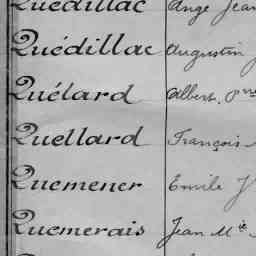 Quédillac Ange Jean
Quédillac Augustin J
Quélard Albert, P
Quellard François
Quemener Emile J
Quemerais Jean Mie